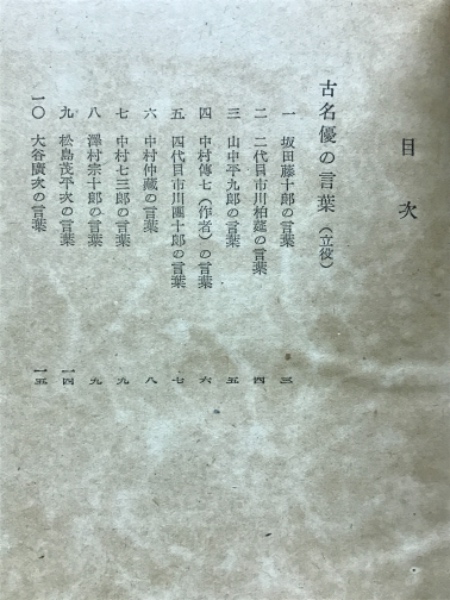 目次
古名優の言葉（立役）
一 坂田藤十郎の言葉 三
二 二代目市川柏莚の言葉 四
三 山中平九郎の言葉 五
四 中村傳七（作者）の言葉 六
五 四代目市川團十郎の言葉 七
六 中村仲蔵の言葉 八
七 中村七三郎の言葉 九
八 澤村宗十郎の言葉 九
九 松島茂平次の言葉 一四
一〇 大谷廣次の言葉 一五